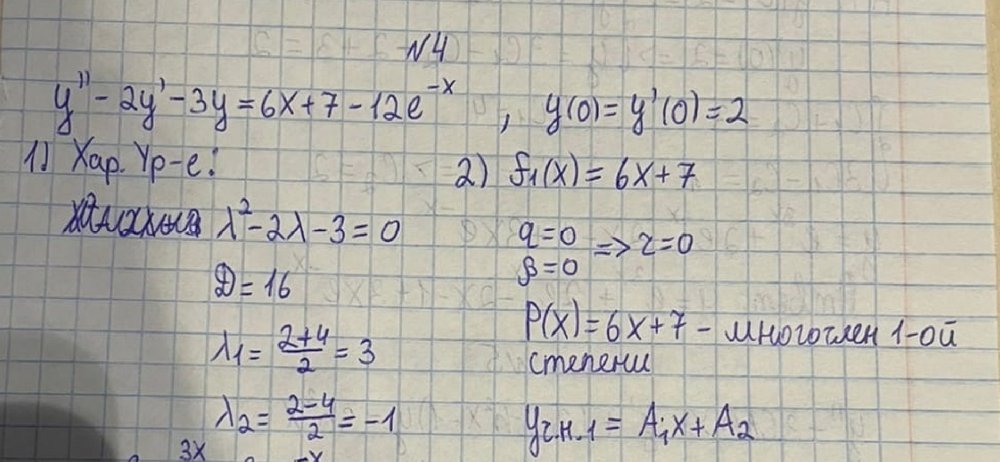 N4
y'' - 2y' - 3y = 6x + 7 - 12e^{-x}, y(0) = y'(0) = 2
1) Хар. Ур-е:
λ² - 2λ - 3 = 0
D = 16
λ1 = (2+4)/2 = 3
λ2 = (2-4)/2 = -1
3x -x
2) f1(x) = 6x + 7
α = 0
β = 0 => r = 0
P(x) = 6x + 7 - многочлен 1-ой
степени
yч.н.1 = A1x + A2